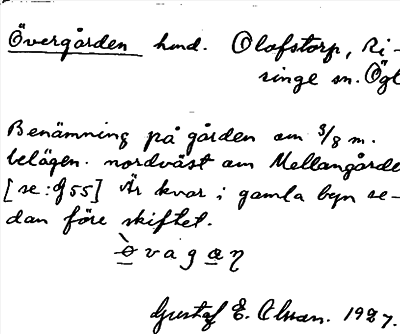 Övergården hmd. Olofstorp, Ri-
singe sn. Ögl
Benämning på gården om 3/8 m.
belägen. nordväst om Mellangårde
[se: g 55] Är kvar i gamla byn se-
dan före skiftet.
ò v a g æ η
Gustaf E. Olsson. 1927.